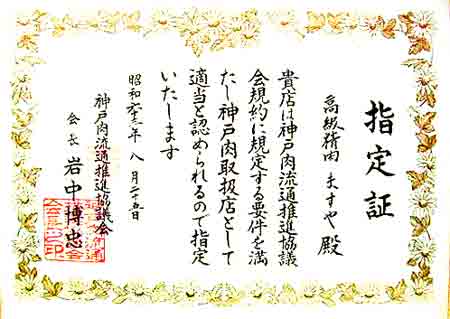 指定証
高級精肉 ますや 殿
貴店は神戸肉流通推進協議
会規約に規定する要件を満
たし神戸肉取扱店として
適当と認められるので指定
いたします
昭和六十三年 八月二十五日
神戸肉流通推進協議会
会長 岩中博忠